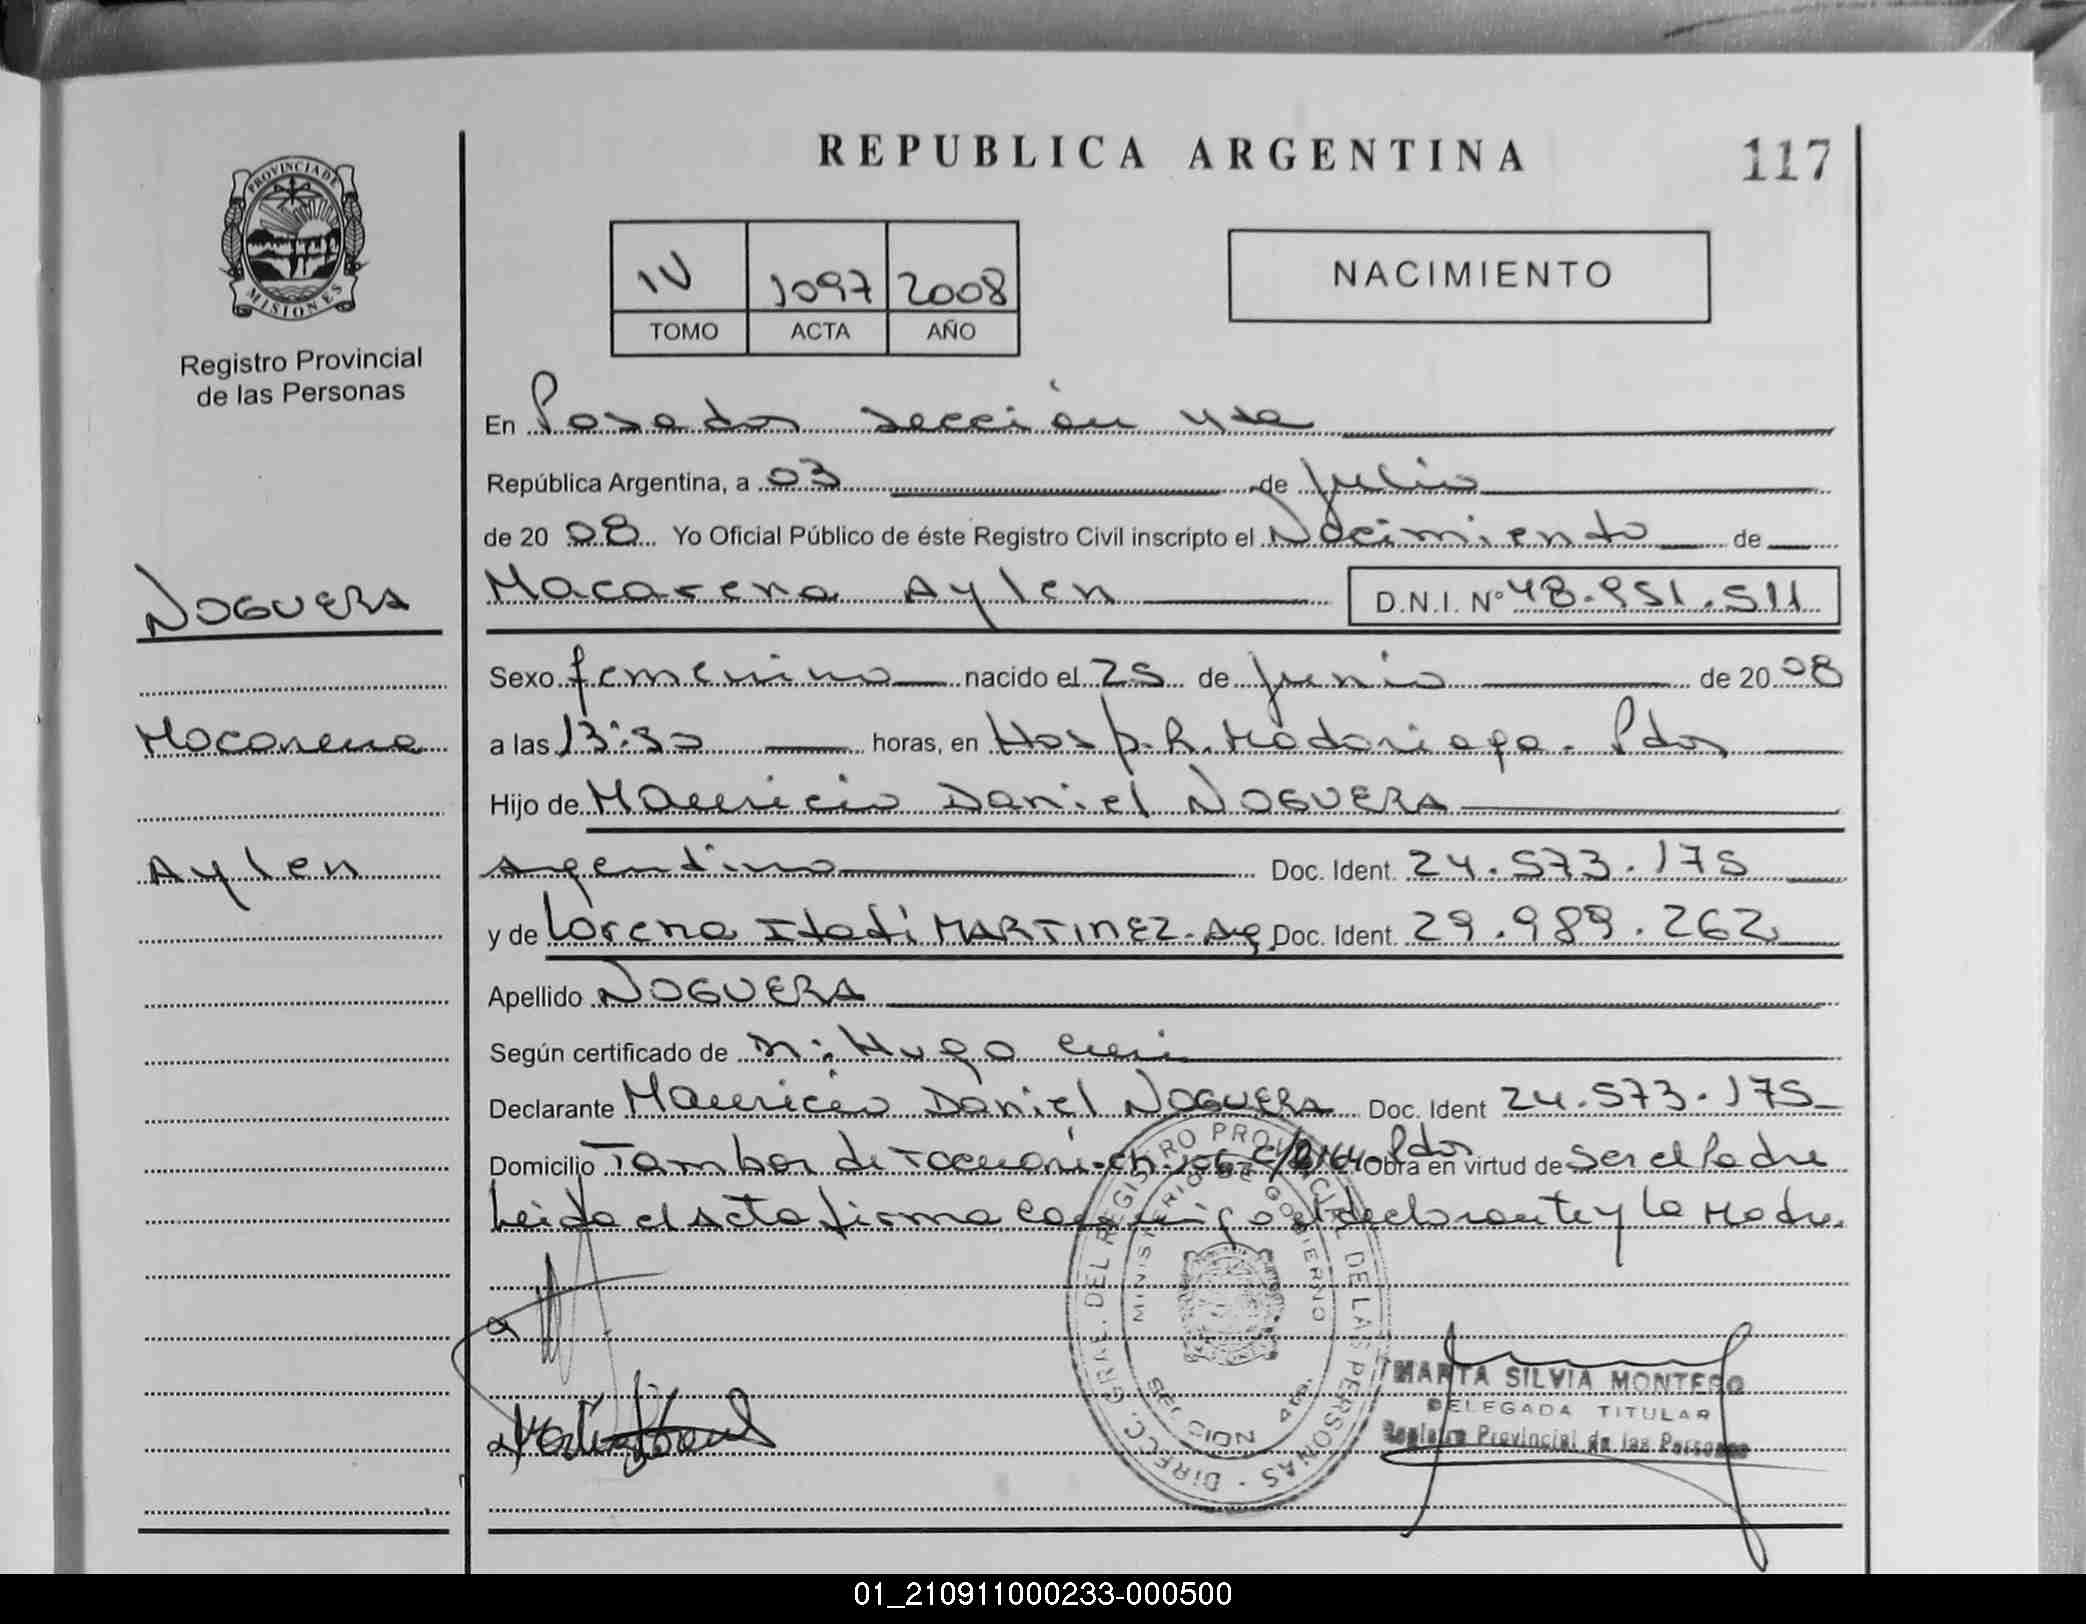 REPUBLICA ARGENTINA
117
PROVINCIA DE
MISIONES
Registro Provincial
de las Personas
IV 1097 2008
TOMO ACTA AÑO
NACIMIENTO
En Posadas sección 4ta
República Argentina, a 03 de Julio
de 20 08 Yo Oficial Público de éste Registro Civil inscripto el Nacimiento de
NOGUERA
Macarena Aylen D.N.I. Nº 48.951.511
Sexo femenino nacido el 25 de Junio de 20 08
Macarena
a las 13:30 horas, en Hosp. R. Madariaga. Pdas
Hijo de Mauricio Daniel NOGUERA
Aylen
Argentino Doc. Ident. 24.573.175
y de Lorena Itatí MARTINEZ. Ag Doc. Ident. 29.989.262
Apellido NOGUERA
Según certificado de Hugo
Declarante Mauricio Daniel NOGUERA Doc. Ident 24.573.175
Domicilio Tambor de Tacuarí Pdas Obra en virtud de Ser el Padre
Leida el Acta firma conmigo el declarante y la Madre.
DIRECC. GRAL. DEL REGISTRO PROVINCIAL DE LAS PERSONAS
MINISTERIO DE GOBIERNO
SECCION 4ta.
MARTA SILVIA MONTERO
DELEGADA TITULAR
Registro Provincial de las Personas
01_210911000233-000500